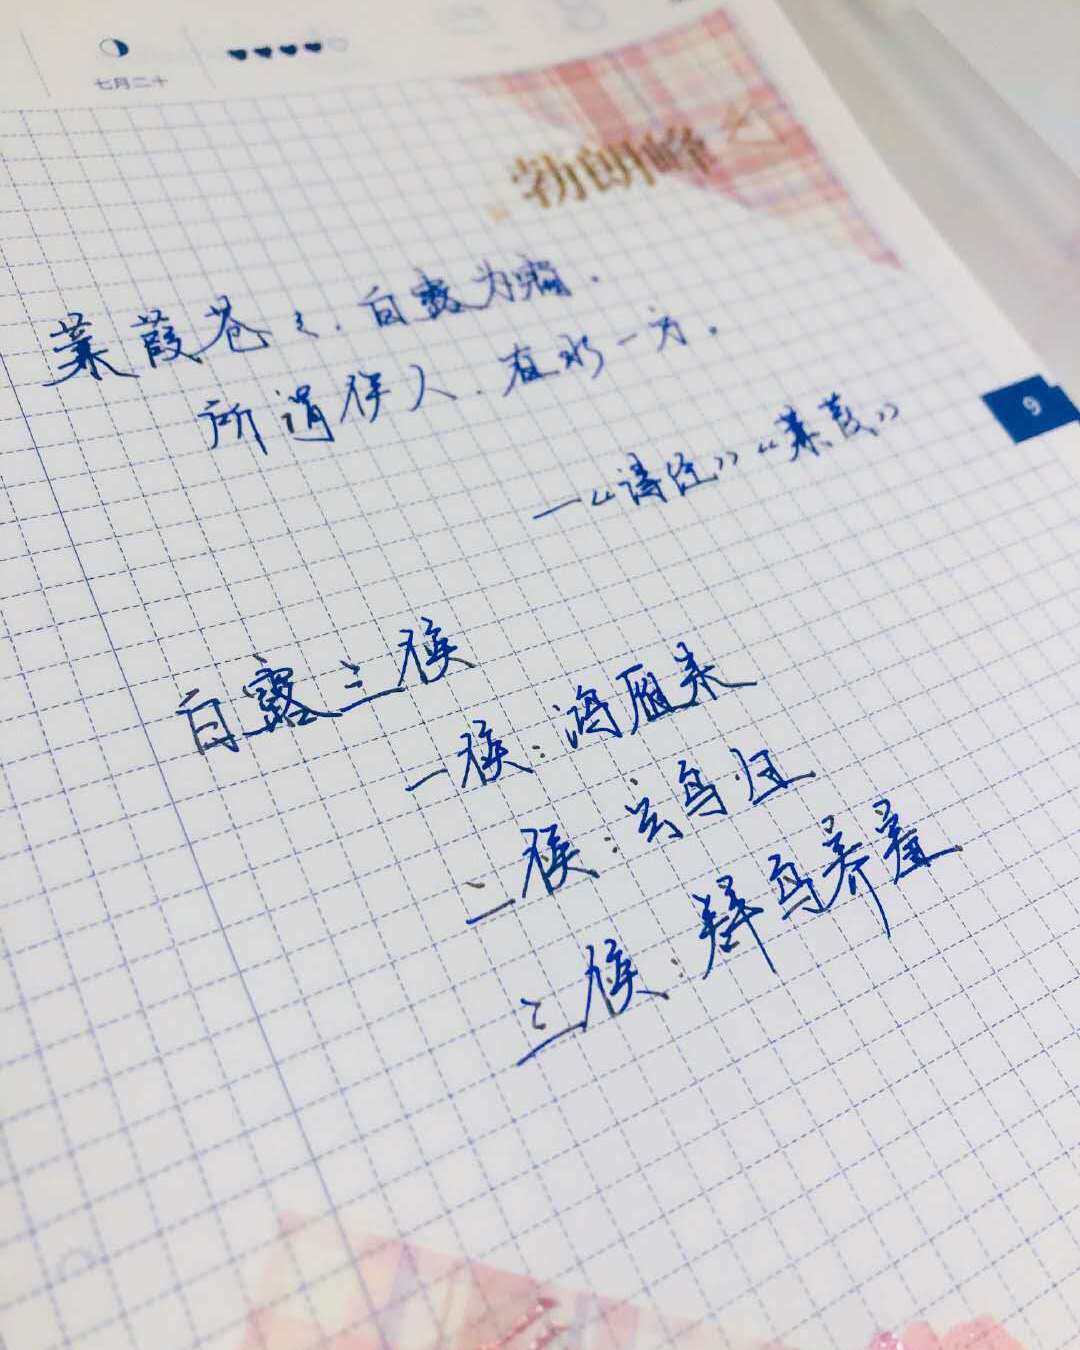 七月二十
勃朗峰
蒹葭苍々.白露为霜.
所谓伊人.在水一方.
—《诗经》“蒹葭”
9
白露三候
一候:鸿雁来
二候:玄鸟归
三候:群鸟养羞